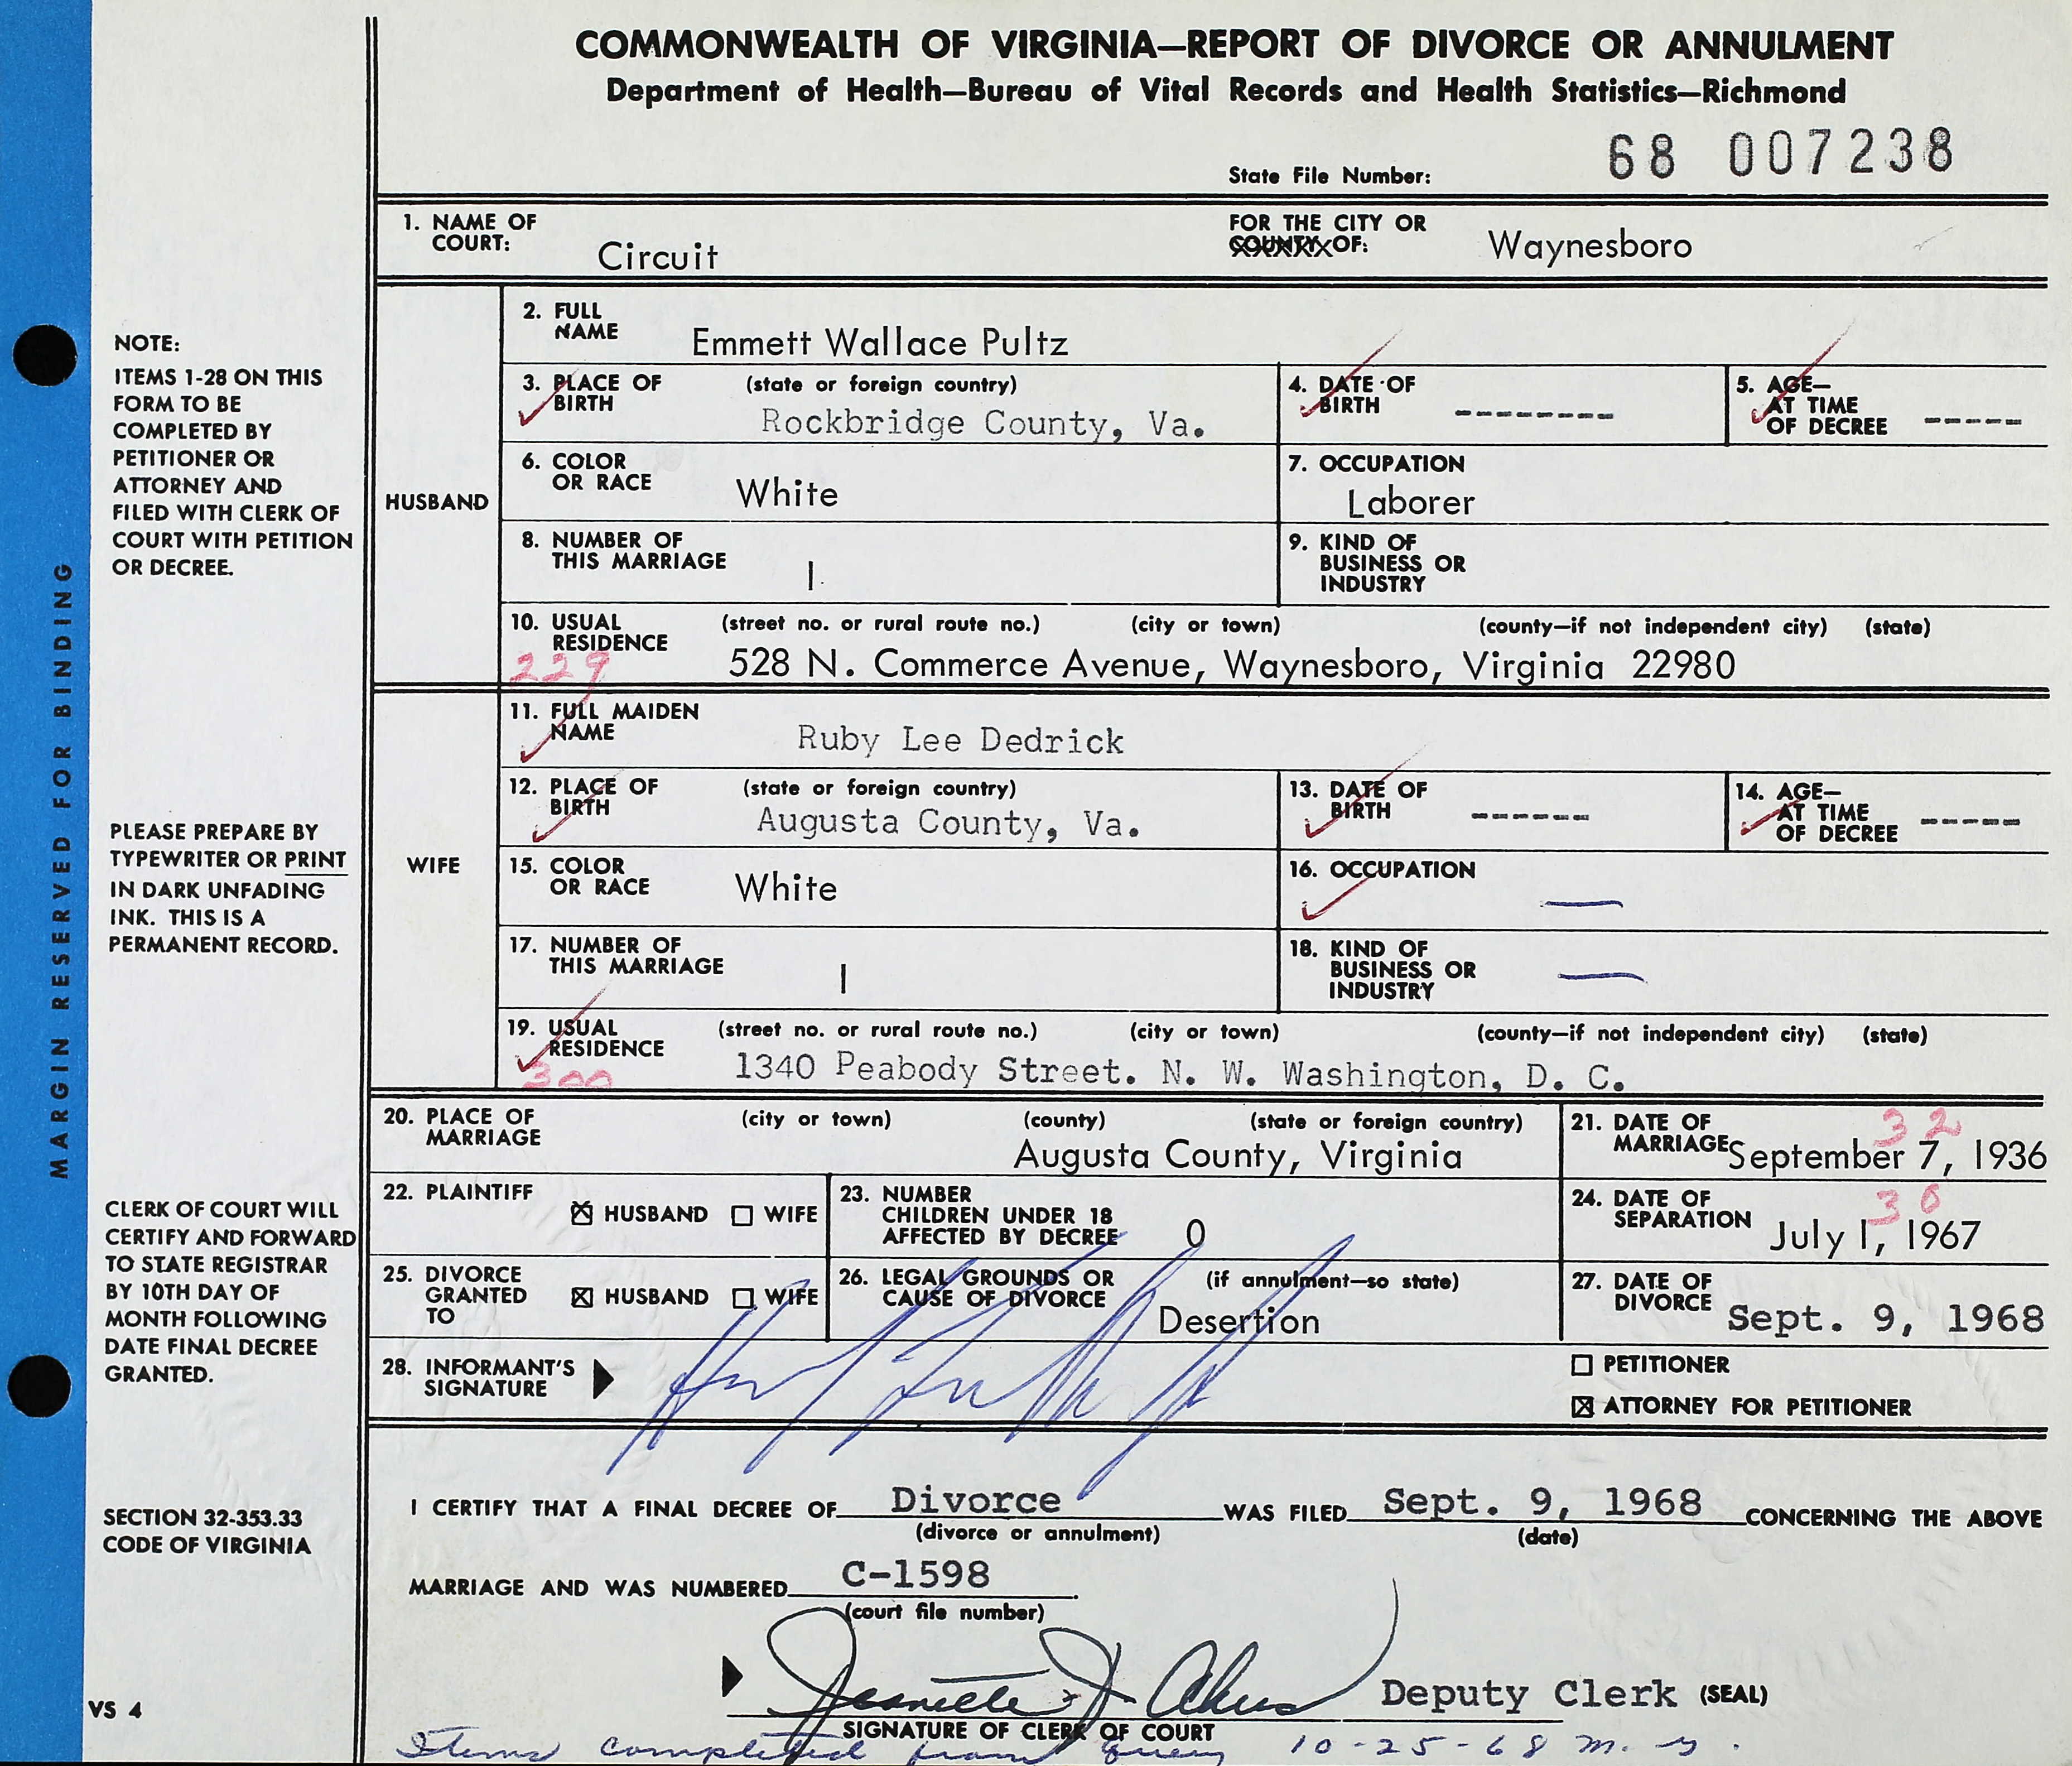 COMMONWEALTH OF VIRGINIA—REPORT OF DIVORCE OR ANNULMENT
Department of Health—Bureau of Vital Records and Health Statistics—Richmond
State File Number: 68 007238
1. NAME OF COURT: Circuit
FOR THE CITY OR COUNTY OF: Waynesboro
HUSBAND
2. FULL NAME Emmett Wallace Pultz
3. PLACE OF BIRTH (state or foreign country) Rockbridge County, Va.
4. DATE OF BIRTH --------
5. AGE—AT TIME OF DECREE -----
6. COLOR OR RACE White
7. OCCUPATION Laborer
8. NUMBER OF THIS MARRIAGE 1
9. KIND OF BUSINESS OR INDUSTRY
10. USUAL RESIDENCE (street no. or rural route no.) (city or town) (county—if not independent city) (state)
229
528 N. Commerce Avenue, Waynesboro, Virginia 22980
WIFE
11. FULL MAIDEN NAME Ruby Lee Dedrick
12. PLACE OF BIRTH (state or foreign country) Augusta County, Va.
13. DATE OF BIRTH ------
14. AGE—AT TIME OF DECREE -----
15. COLOR OR RACE White
16. OCCUPATION —
17. NUMBER OF THIS MARRIAGE 1
18. KIND OF BUSINESS OR INDUSTRY —
19. USUAL RESIDENCE (street no. or rural route no.) (city or town) (county—if not independent city) (state)
300
1340 Peabody Street. N. W. Washington, D. C.
20. PLACE OF MARRIAGE (city or town) (county) (state or foreign country)
Augusta County, Virginia
21. DATE OF MARRIAGE September 7, 1936
32
22. PLAINTIFF ☒ HUSBAND ☐ WIFE
23. NUMBER CHILDREN UNDER 18 AFFECTED BY DECREE 0
24. DATE OF SEPARATION July 1, 1967
30
25. DIVORCE GRANTED TO ☒ HUSBAND ☐ WIFE
26. LEGAL GROUNDS OR CAUSE OF DIVORCE (if annulment—so state) Desertion
27. DATE OF DIVORCE Sept. 9, 1968
28. INFORMANT'S SIGNATURE
☐ PETITIONER
☒ ATTORNEY FOR PETITIONER
I CERTIFY THAT A FINAL DECREE OF Divorce WAS FILED Sept. 9, 1968 CONCERNING THE ABOVE
(divorce or annulment) (date)
MARRIAGE AND WAS NUMBERED C-1598
(court file number)
Jeannette J. Deputy Clerk (SEAL)
SIGNATURE OF CLERK OF COURT
Items completed from query 10-25-68 m.
MARGIN RESERVED FOR BINDING
NOTE:
ITEMS 1-28 ON THIS
FORM TO BE
COMPLETED BY
PETITIONER OR
ATTORNEY AND
FILED WITH CLERK OF
COURT WITH PETITION
OR DECREE.
PLEASE PREPARE BY
TYPEWRITER OR PRINT
IN DARK UNFADING
INK. THIS IS A
PERMANENT RECORD.
CLERK OF COURT WILL
CERTIFY AND FORWARD
TO STATE REGISTRAR
BY 10TH DAY OF
MONTH FOLLOWING
DATE FINAL DECREE
GRANTED.
SECTION 32-353.33
CODE OF VIRGINIA
VS 4